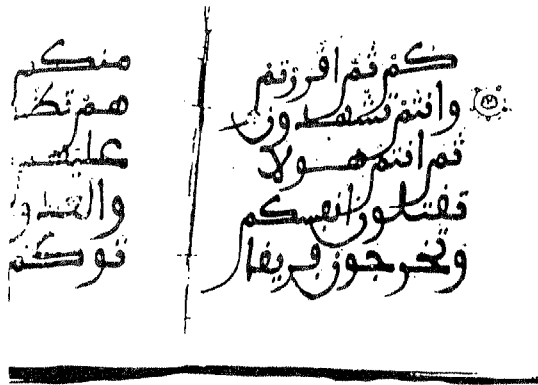 كم ثم اقررتم
وانتم تشهدون
ثم انتم هولا
تقتلون انفسكم
وتخرجون فريقا
منكم
هم تظـ
عليهم
والعدو
توكم